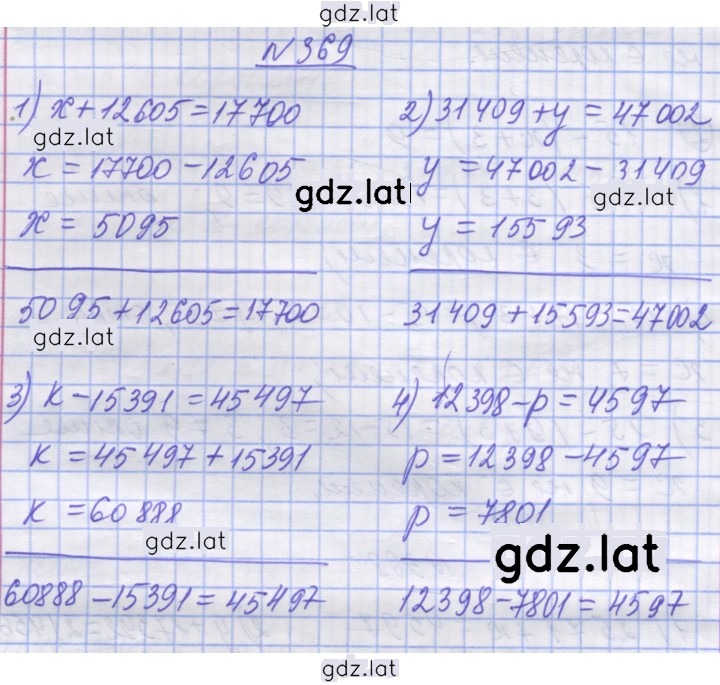 gdz.lat
N 369
1) x + 12605 = 17700
gdz.lat
x = 17700 - 12605
x = 5095
5095 + 12605 = 17700
gdz.lat
2) 31409 + y = 47002
y = 47002 - 31409
gdz.lat
gdz.lat
y = 15593
31409 + 15593 = 47002
3) k - 15391 = 45497
k = 45497 + 15391
k = 60888
gdz.lat
60888 - 15391 = 45497
4) 12398 - p = 4597
p = 12398 - 4597
p = 7801
gdz.lat
12398 - 7801 = 4597
gdz.lat